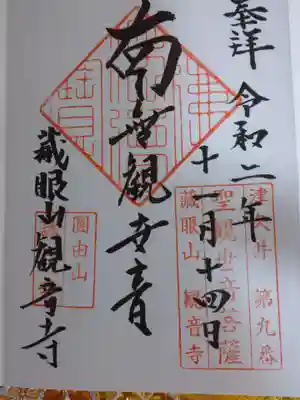 奉拝 令和二年
十一月十四日
津久井 第九番
聖觀世音菩薩
藏眼山 觀音寺
南無観世音
圓由山
蔵眼山観音寺